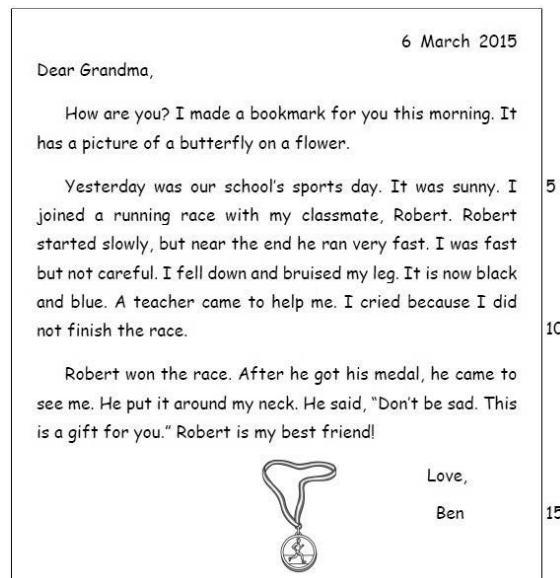 6 March 2015
Dear Grandma,
How are you? I made a bookmark for you this morning. It
has a picture of a butterfly on a flower.
Yesterday was our school's sports day. It was sunny. I 5
joined a running race with my classmate, Robert. Robert
started slowly, but near the end he ran very fast. I was fast
but not careful. I fell down and bruised my leg. It is now black
and blue. A teacher came to help me. I cried because I did
not finish the race. 10
Robert won the race. After he got his medal, he came to
see me. He put it around my neck. He said, “Don't be sad. This
is a gift for you.” Robert is my best friend!
Love,
Ben 15